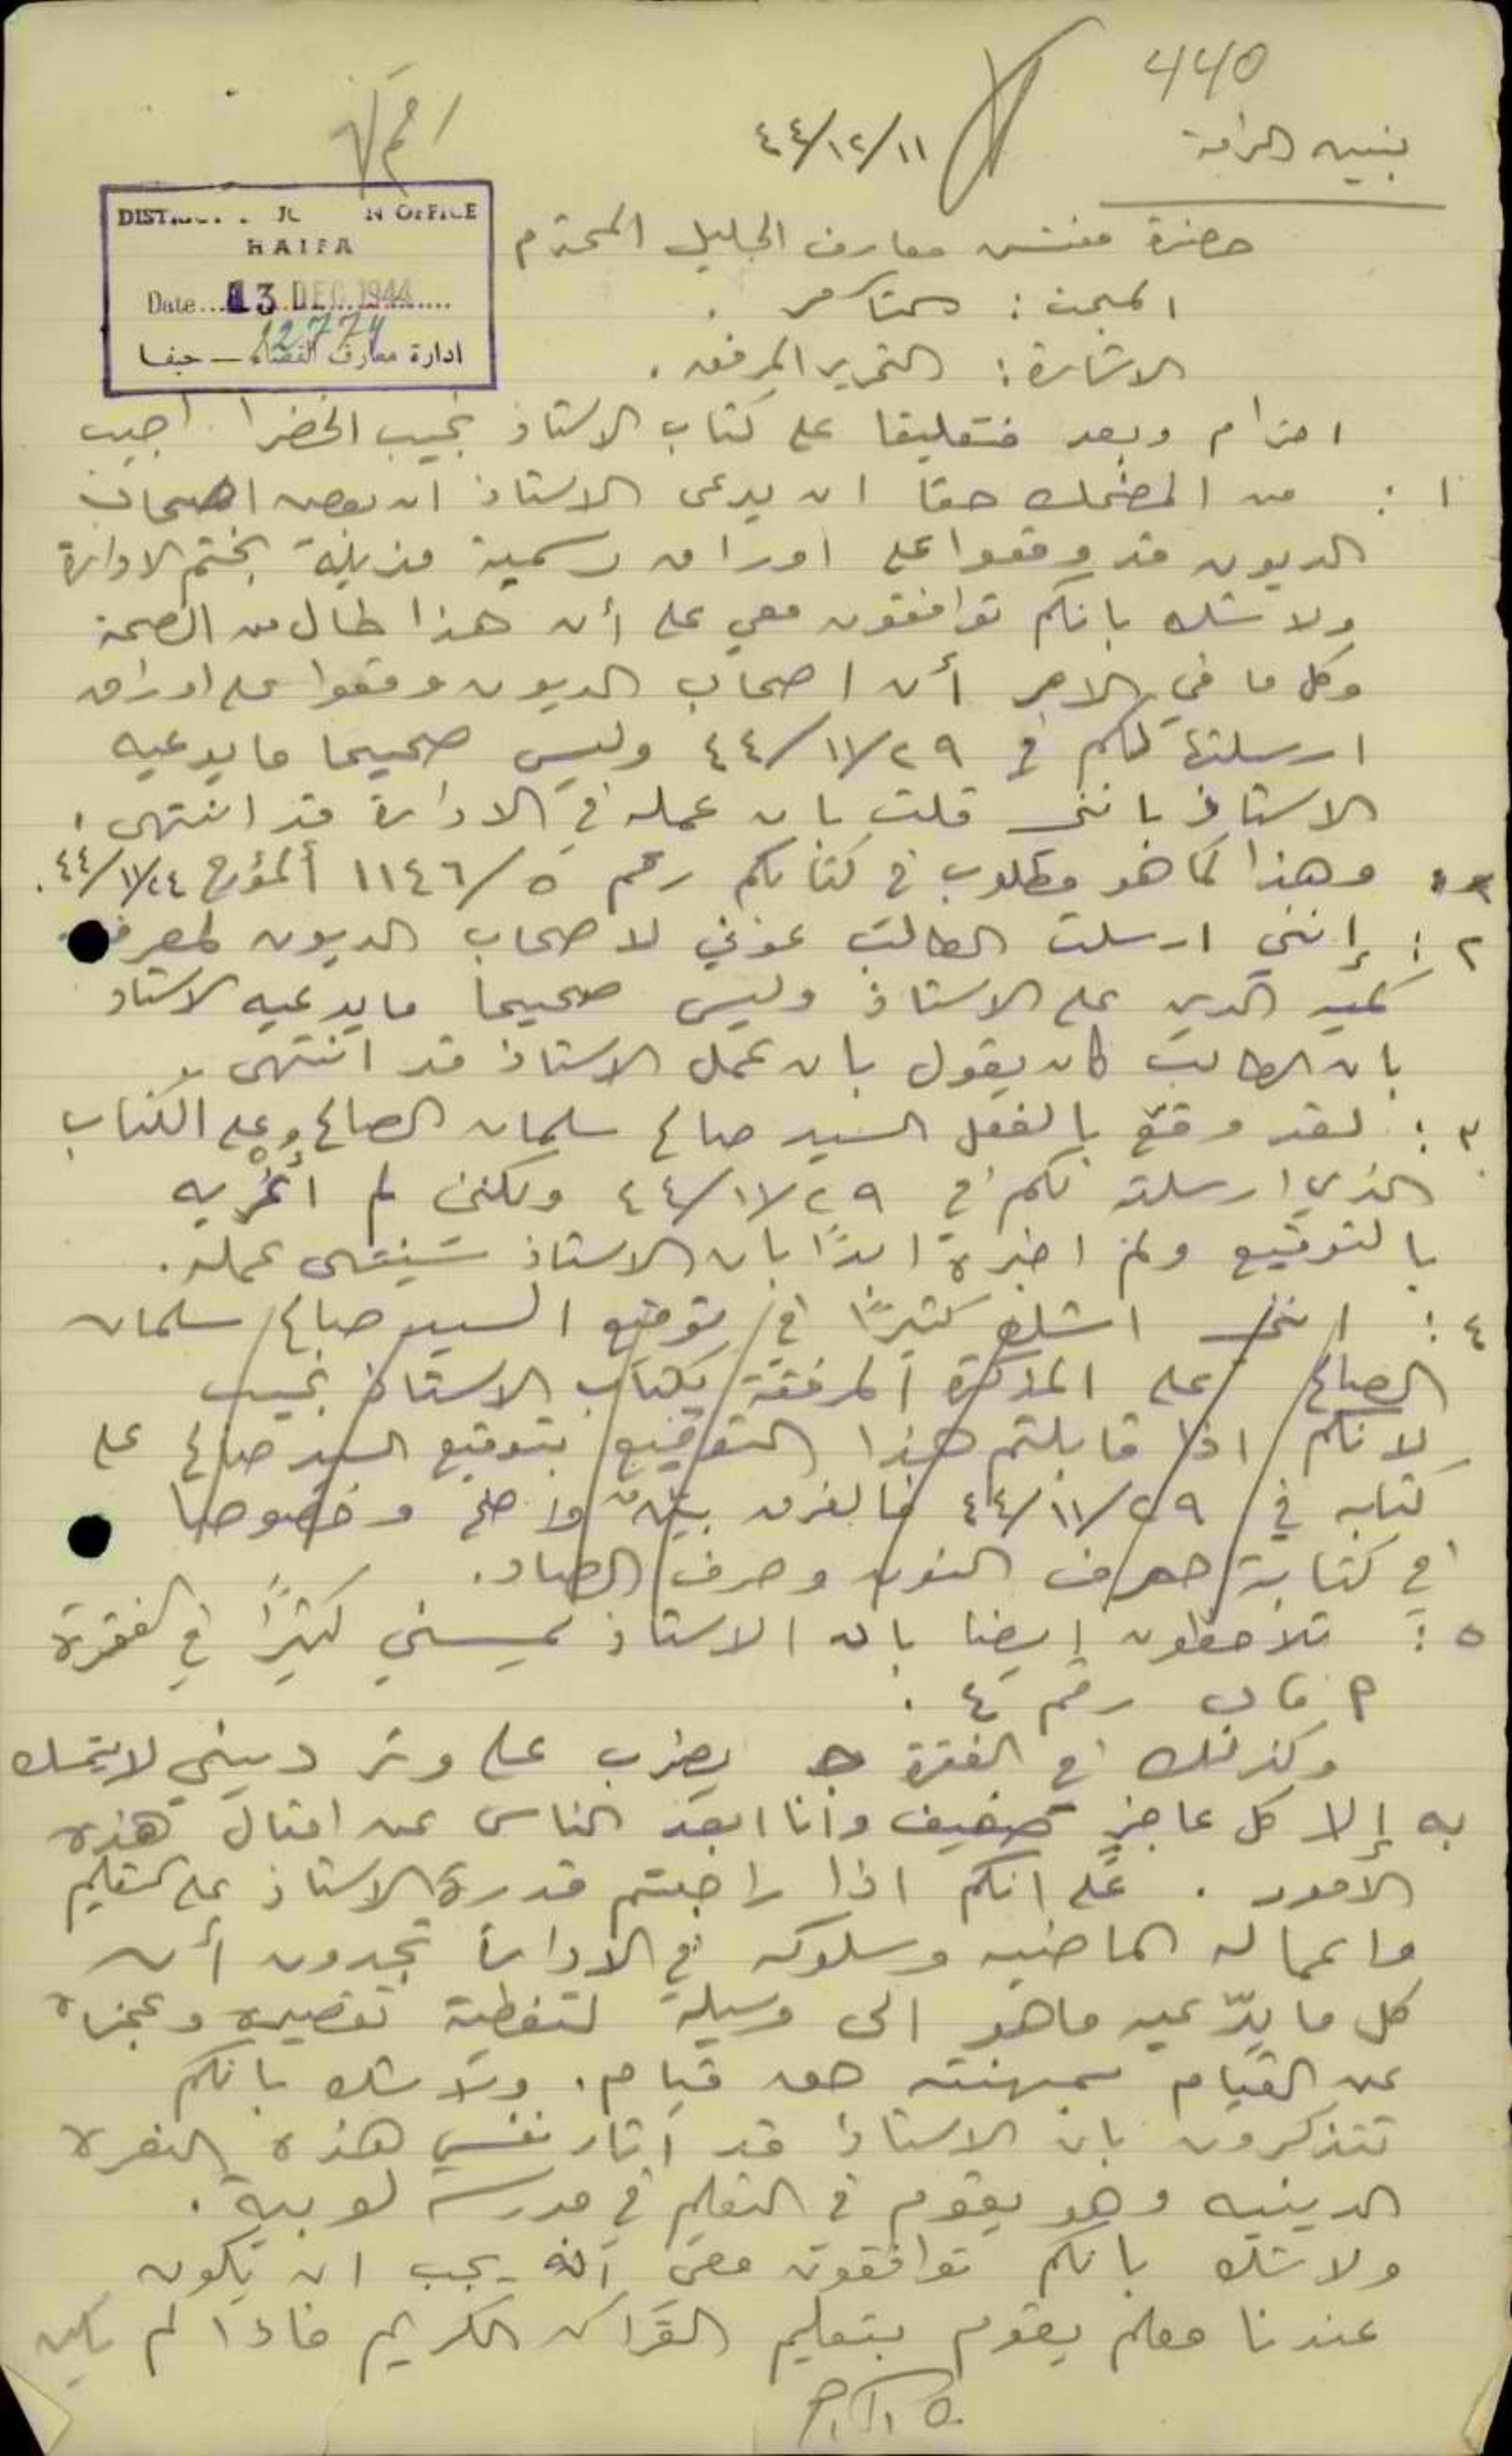 440
بنيه الرامة
٤٤/١٢/١١
DISTRICT EDUCATION OFFICE
HAIFA
Date 13 DEC 1944
12774
ادارة معارف القضاء – حيفا
حضرة مفتش معارف الجليل المحترم
المبحث:
الاشارة: التحرير المرفق.
احترام وبعد فتعليقا على كتاب الاستاذ نجيب الخضرا اجيب
١: من المضحك حقا ان يدعي الاستاذ ان بعض اصحاب
الديون قد وقعوا على اوراق رسمية مذيلة بختم الادارة
ولا شك بانكم توافقون معي على أن هذا خال من الصحة
وكل ما في الامر أن اصحاب الديون وقعوا على اوراق
ارسلتها لكم في ٤٤/١١/٢٩ وليس صحيحا ما يدعيه
الاستاذ بانني قلت بان عمله في الادارة قد انتهى.
وهذا كما هو مطلوب في كتابكم رقم ١١٤٦/٥ المؤرخ ٤٤/١١/٢٤.
٢: إنني ارسلت الطالب عوني لاصحاب الديون لمعرفة
كمية الدين على الاستاذ وليس صحيحا ما يدعيه الاستاذ
بان الطالب كان يقول بان عمل الاستاذ قد انتهى.
٣: لقد وقّع بالفعل السيد صالح سلمان الصالح وعلى الكتاب
الذي ارسلته لكم في ٤٤/١١/٢٩ ولكنني لم أغريه
بالتوقيع ولم اخبره ابدًا بان الاستاذ سينتهى عمله.
٤: انني اشك كثيرًا في توقيع السيد صالح سلمان
الصالح على المذكرة المرفقة بكتاب الاستاذ نجيب
لانكم اذا قابلتم هذا التوقيع بتوقيع السيد صالح على
كتابه في ٤٤/١١/٢٩ فالفرق بيّن واضح وخصوصا
في كتابة حرف النون وحرف الصاد.
٥: تلاحظون ايضا بان الاستاذ يمسني كثيرًا في الفقرة
رقم ٤.
وكذلك في الفقرة ج يضرب على وتر ديني لا يتمسك
به إلا كل عاجز ضعيف وانا ابعد الناس عن امثال هذه
الامور. على انكم اذا راجعتم قدرة الاستاذ على التعليم
واعماله الماضيه وسلوكه في الادارة تجدون أن
كل ما يدّعيه ما هو الى وسيلة لتغطية تقصيره وعجزه
عن القيام بمهنته حق قيام. ولا شك بانكم
تتذكرون بان الاستاذ قد اثار نفسي هذه النعرة
الدينيه وهو يقوم في التعليم في مدرسة لوبية.
ولا شك بانكم توافقون معي أنه يجب ان يكون
عندنا معلم يقوم بتعليم القرآن الكريم فاذا لم يكن